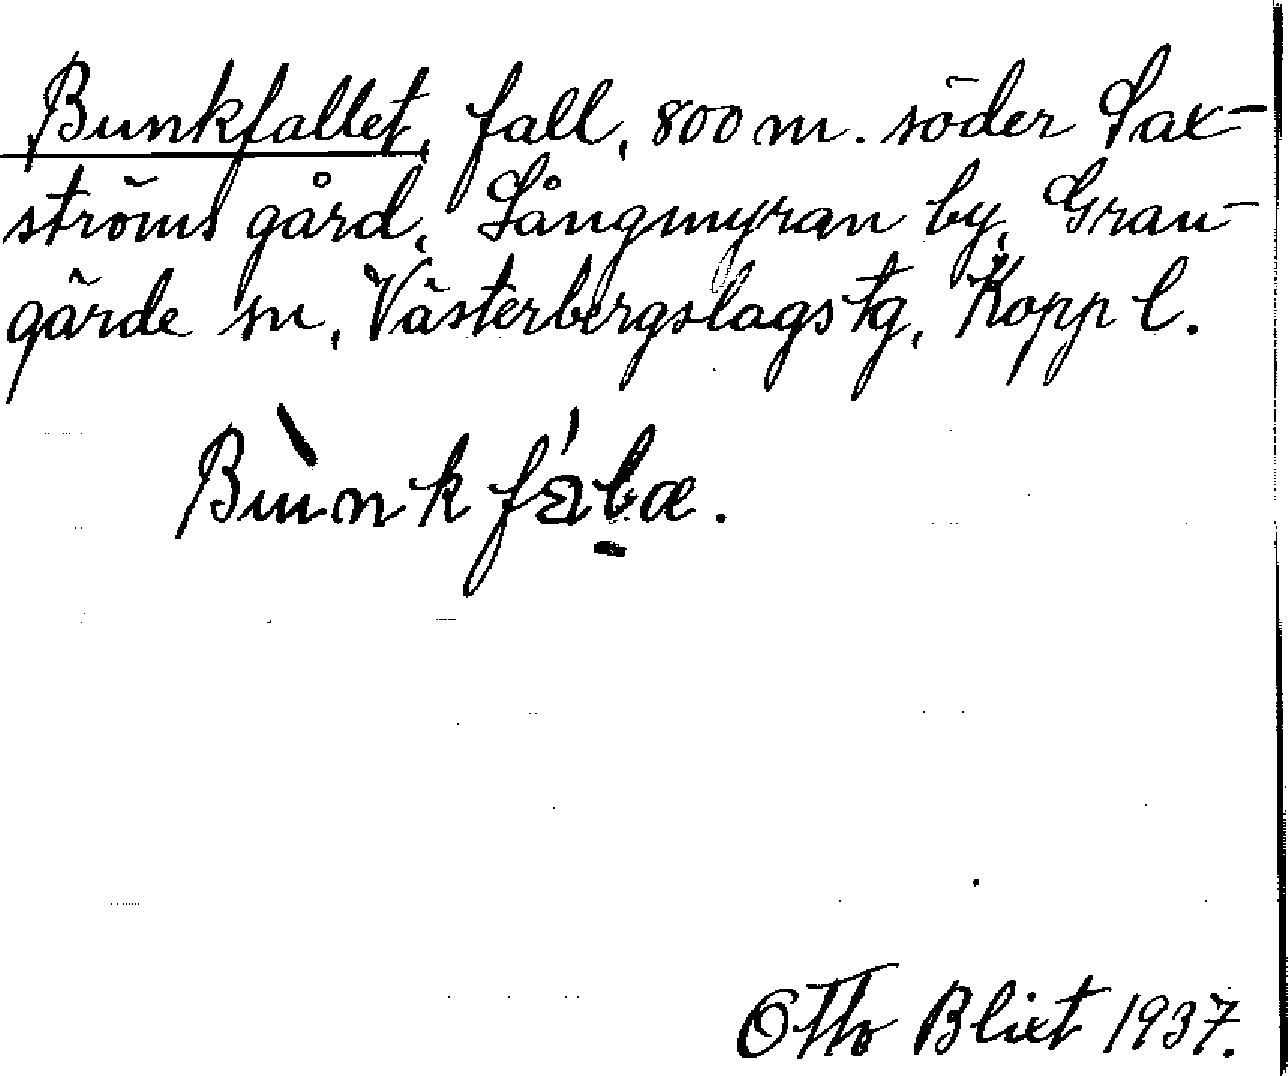 Bunkfallet, fall, 800 m. söder Sax-
ströms gård, Långmyran by, Gran-
gärde sn, Västerbergslags tg, Kopp l.
Bùnkfálæ.
Otto Blixt 1937.